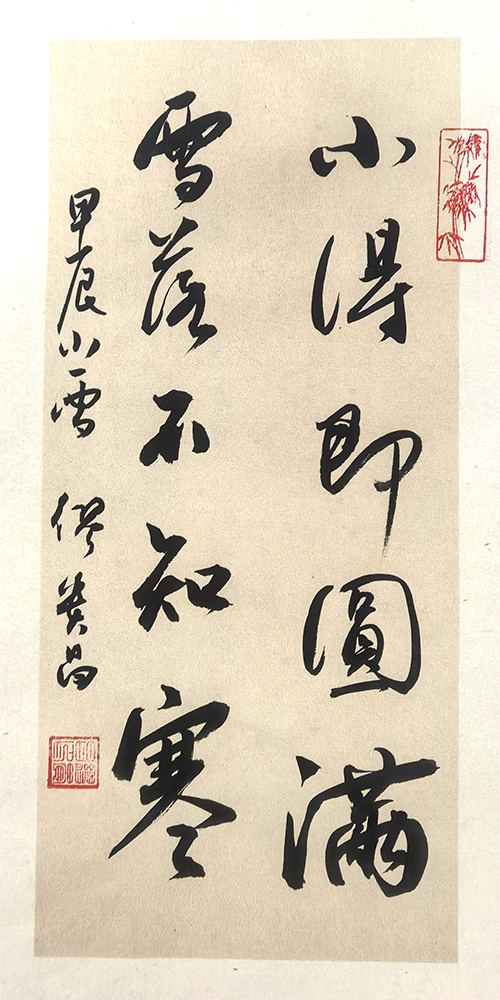 小得即圓滿
雪落不知寒
甲辰小雪 繆貴昌